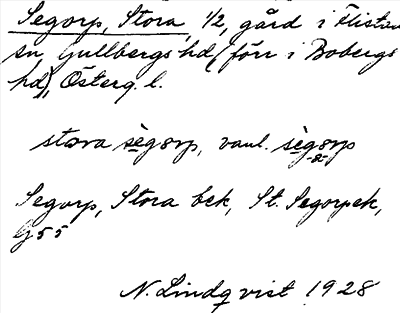 Segorp, Stora, 1/2, gård i Flistad
sn Gullbergs hd (förr i Bobergs
hd), Österg. l.
stora sègorp, vanl. sègorp
Segorp, Stora bek, St. Segorp ek,
G 55
N. Lindqvist 1928